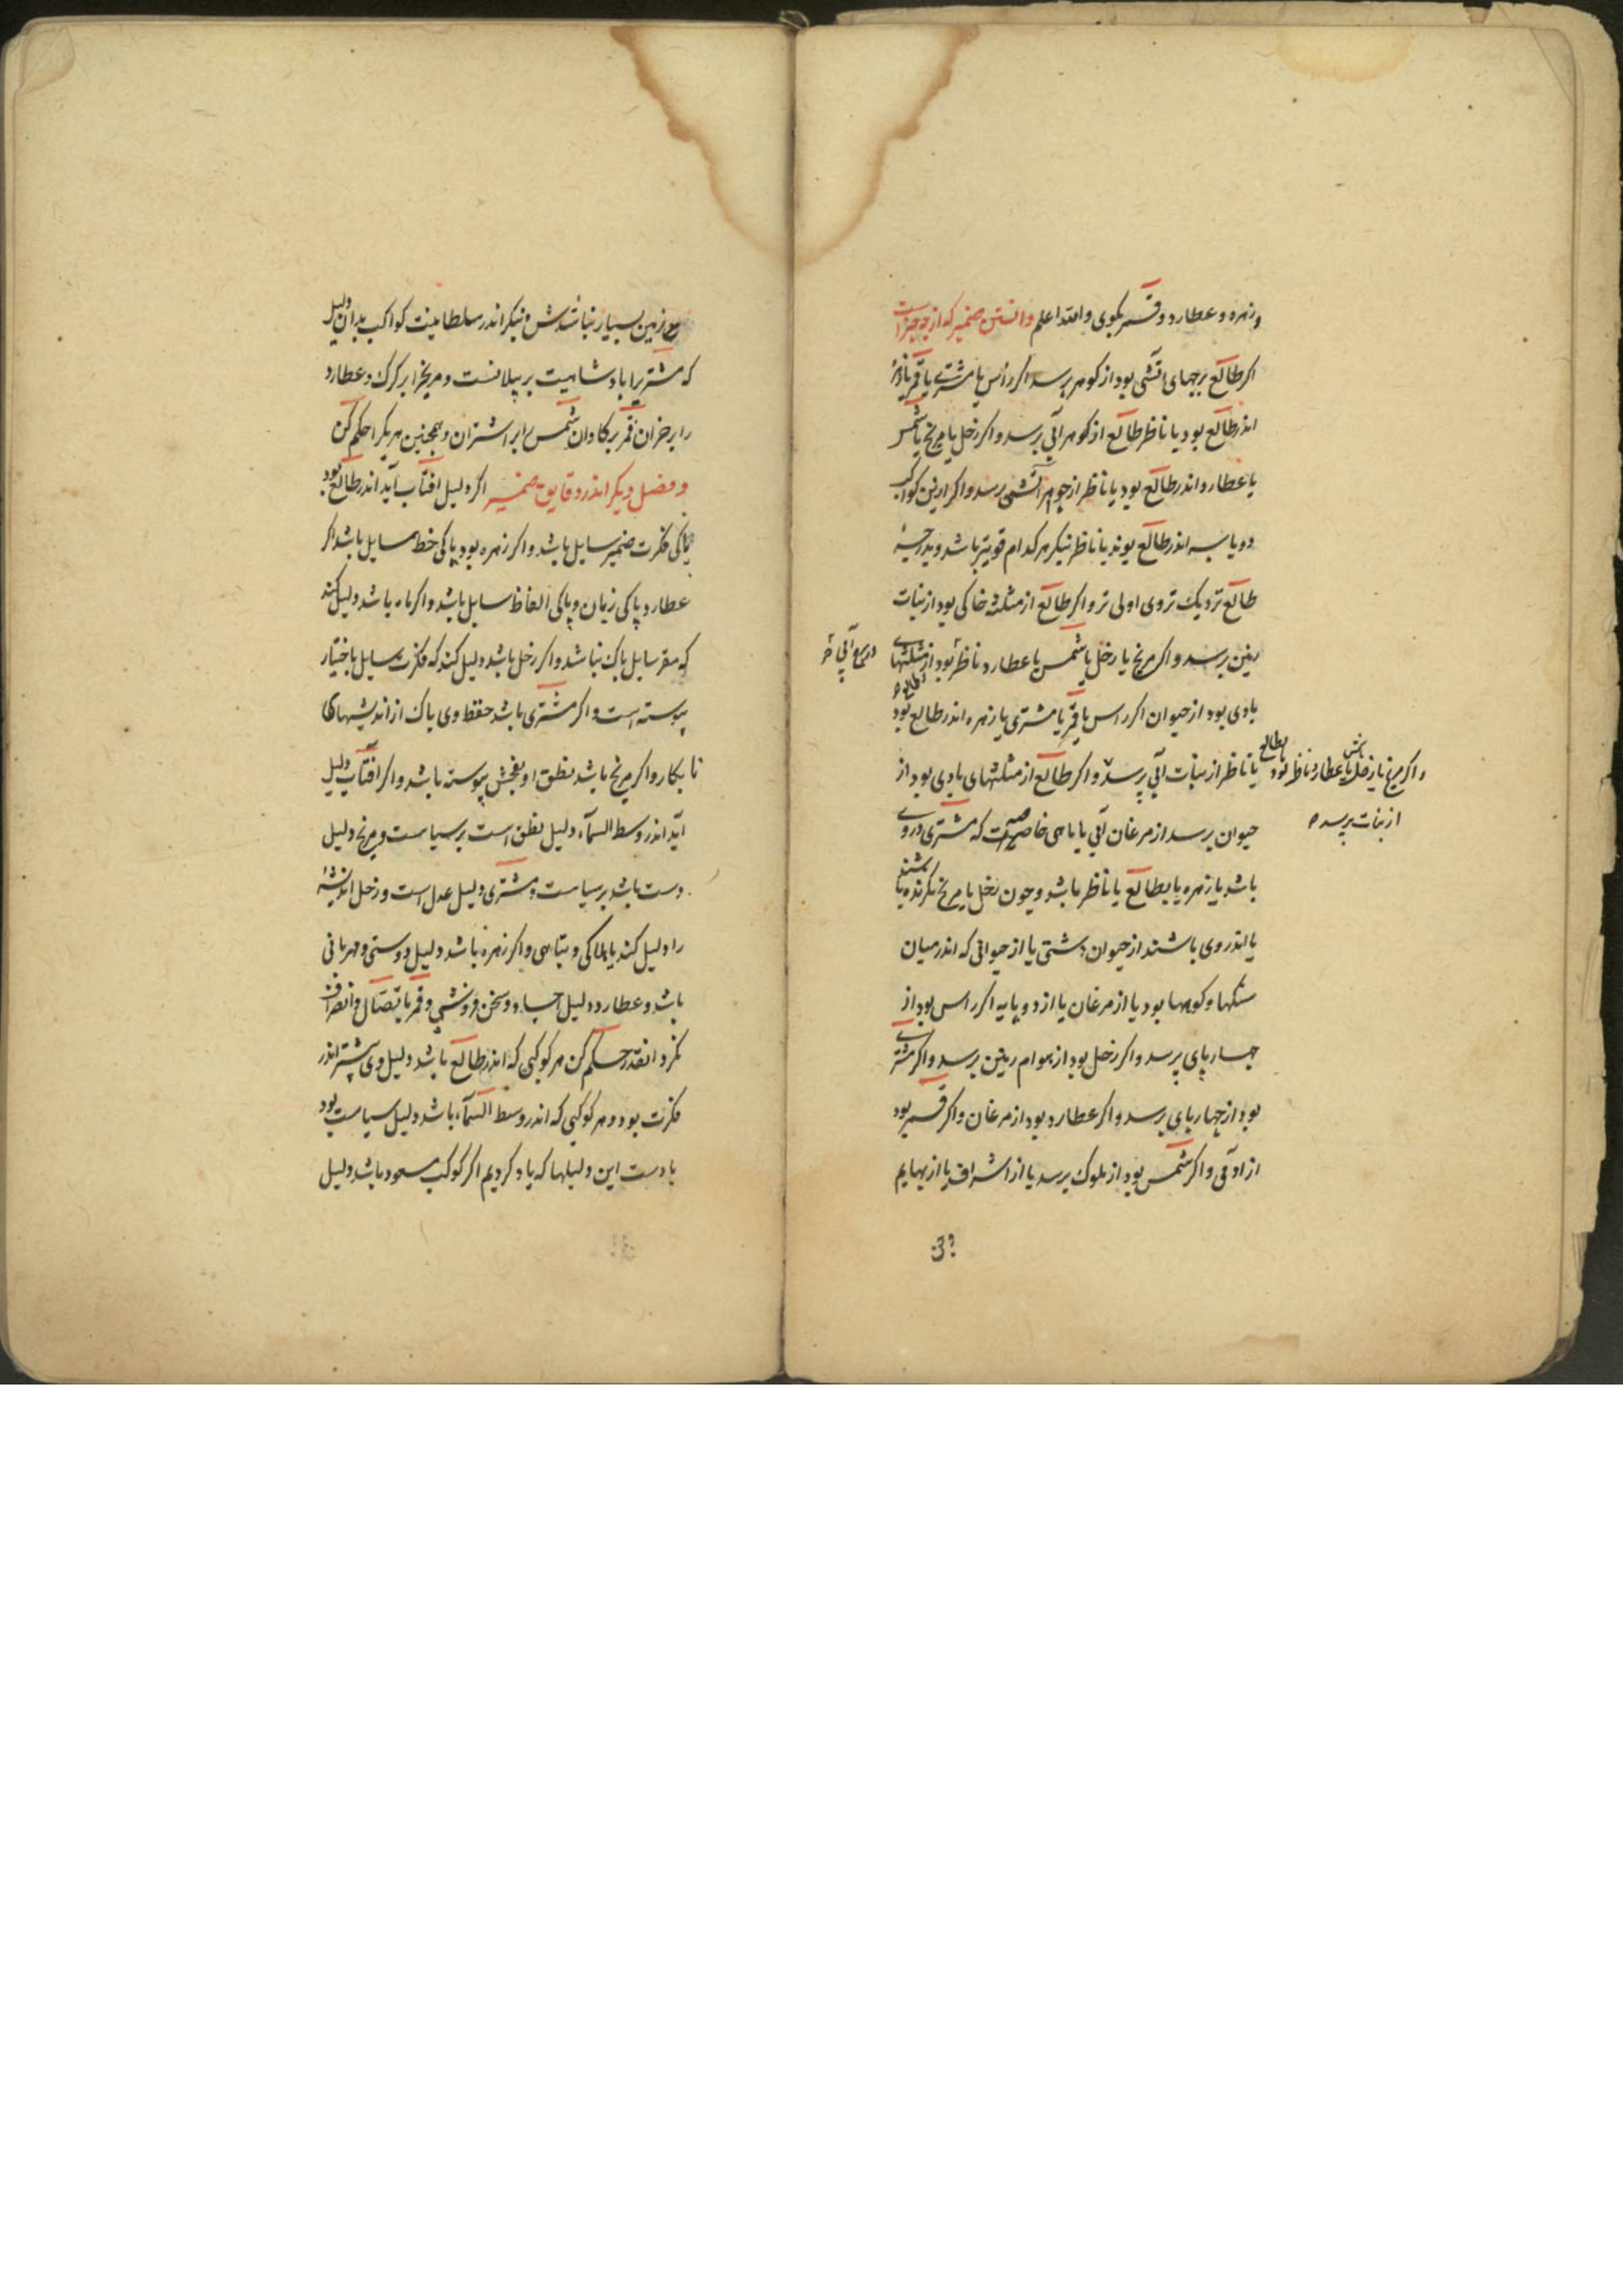 و زهره و عطارد و قمر بکوی والله اعلم دانستن ضمیر که از چه چیز است
اکر طالع برجهای آتشی بود از کوهر پرسد اکر رأس یا مشتری یا قمر یا زهره
اندر طالع بود یا ناظر طالع از کوهر آبی پرسد و اکر زحل یا مریخ یا شمس
یا عطارد اندر طالع بود یا ناظر از جوهر آتشی پرسد و اکر ازین کواکب
دو یا سه اندر طالع بوند یا ناظر بنکر هر کدام قویتر باشد و بدرجهٔ
طالع نزدیک تر وی اولی تر و اکر طالع از مثلثه خاکی بود از نبات
زمین پرسد و اکر مریخ یا زحل یا شمس یا عطارد ناظر بود از مثلثهای
بادی بود از حیوان اکر راس یا قمر یا مشتری یا زهره اندر طالع بود
یا ناظر از نبات آبی پرسد و اکر طالع از مثلثهای بادی بود از
و اکر مریخ یا زحل یا شمس یا عطارد ناظر بود بطالع
از نبات پرسد
حیوان پرسد از مرغان آبی یا ماهی خاصه که مشتری در وی
باشد یا زهره یا بطالع یا ناظر باشد و چون زحل یا مریخ نکرنده باشند
یا اندر وی باشند از حیوان دشتی یا از حیوانی که اندر میان
سنکها و کوهها بود یا از مرغان یا از دو پایه اکر راس بود از
چهارپای پرسد و اکر زحل بود از هوام زمین پرسد و اکر مشتری
بود از چهارپای پرسد و اکر عطارد بود از مرغان و اکر قمر بود
از آدمی و اکر شمس بود از ملوک پرسد یا از اشراف یا از بهایم
زمین بسیار نباشدش و بنکر اندر سلطانیت کواکب بدان دلیل
که مشتریرا بادشاهیت بر پیلانست و مریخرا بر کرک و عطارد
را بر خران قمر بر کاوان شمس را بر اشتران و همچنین هر یکرا حکم کن
و فصل دیکر اندر دقایق ضمیر اکر دلیل آفتاب آید اندر طالع بود
پاکی فکرت ضمیر سایل باشد و اکر زهره بود پاکی خط سایل باشد اکر
عطارد پاکی زبان و پاکی الفاظ سایل باشد و اکر ماه باشد دلیل کند
که سفر سایل باک نباشد و اکر زحل باشد دلیل کند که فکرت سایل باختیار
پیوسته است و اکر مشتری باشد حفظ وی باک از اندیشهای
نابکار و اکر مریخ باشد نطق او بفحش پیوسته باشد و اکر آفتاب دلیل
آید اندر وسط السمآء دلیل نطق است بر سیاست و مریخ دلیل
دست باشد بر سیاست و مشتری دلیل عدل است و زحل اندیشهٔ
را دلیل کند یا هلاکی و تباهی و اکر زهره باشد دلیل دوستی و مهربانی
باشد و عطارد دلیل حساب و سخن فروشی و قمر باتصال و انصراف
نکرد آنقدر حکم کن هر کوکبی که اندر طالع باشد دلیل وی بیشتر اندر
فکرت بود و هر کوکبی که اندر وسط السمآء باشد دلیل سیاست بود
یا دست این دلیلها که یاد کردیم اکر کوکب مسعود باشد دلیل